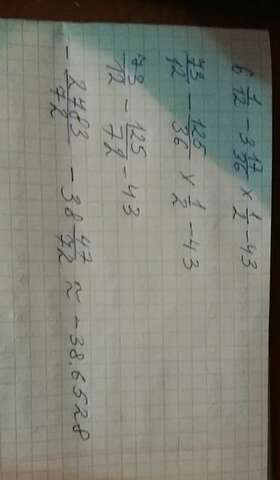 6 1/12 - 3 17/36 × 1/2 - 43
73/12 - 125/36 × 1/2 - 43
73/12 - 125/72 - 43
- 2783/72 - 38 47/72 ≈ - 38.6528